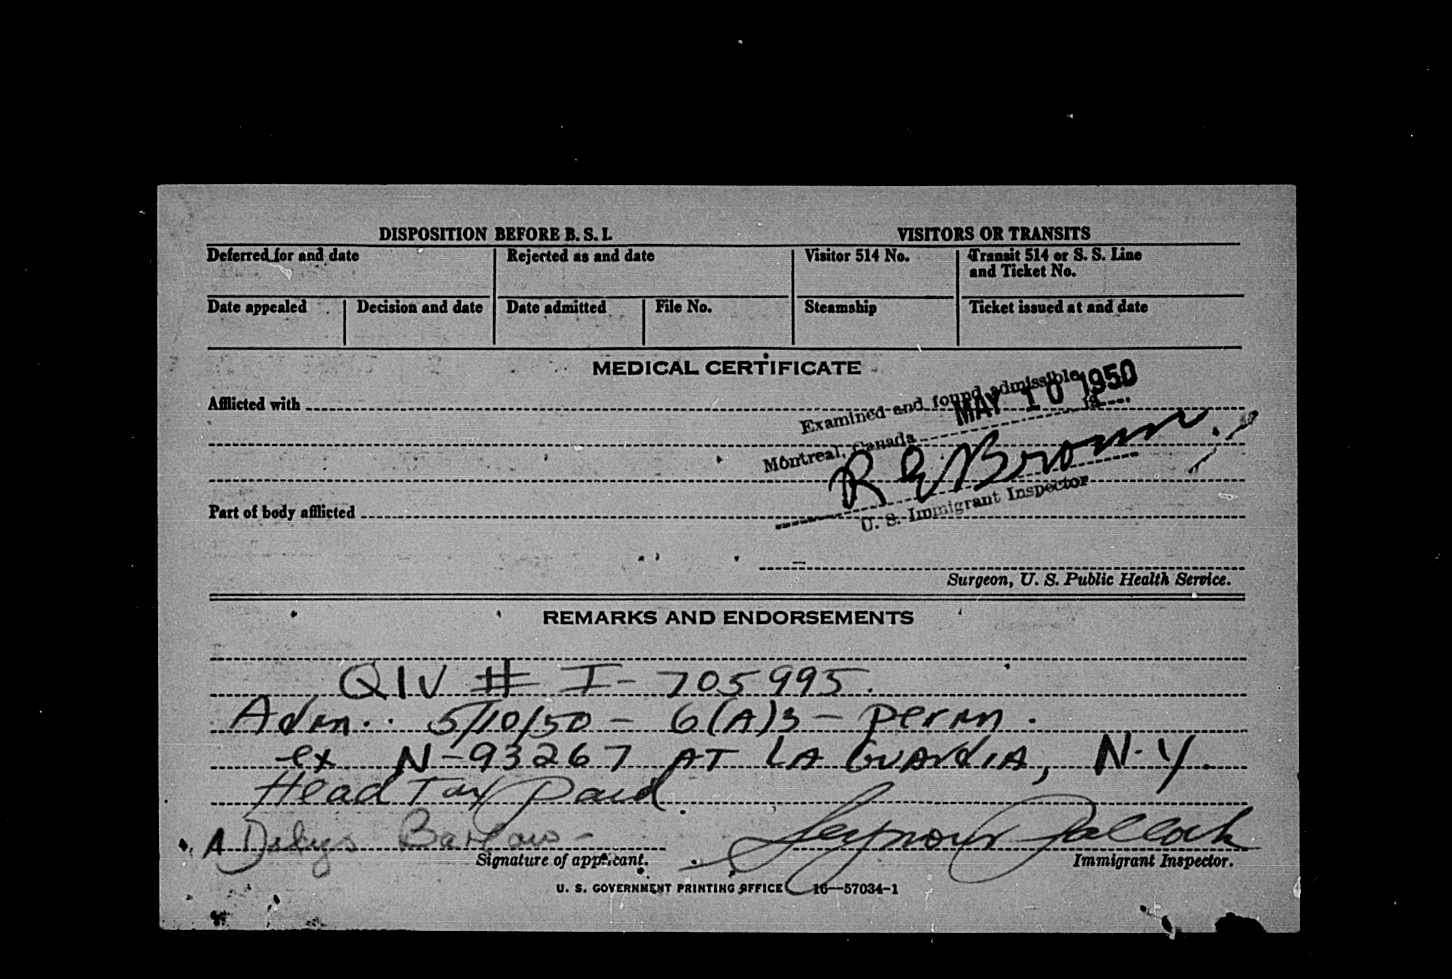 DISPOSITION BEFORE B. S. I.
VISITORS OR TRANSITS
Deferred for and date
Rejected as and date
Visitor 514 No.
Transit 514 or S. S. Line
and Ticket No.
Date appealed
Decision and date
Date admitted
File No.
Steamship
Ticket issued at and date
MEDICAL CERTIFICATE
Afflicted with
Examined and found admissible
MAY 10 1950
19
Montreal, Canada
R E Brown
U. S. Immigrant Inspector
Part of body afflicted
Surgeon, U. S. Public Health Service.
REMARKS AND ENDORSEMENTS
QIV # I-705995.
Adm.. 5/10/50 - 6(A)3 - perm.
ex N-93267 AT LA GUARDIA, N.Y.
Head Tax Paid
A Barlow - Seymour
Signature of applicant.
Immigrant Inspector.
U. S. GOVERNMENT PRINTING OFFICE 16—57034-1